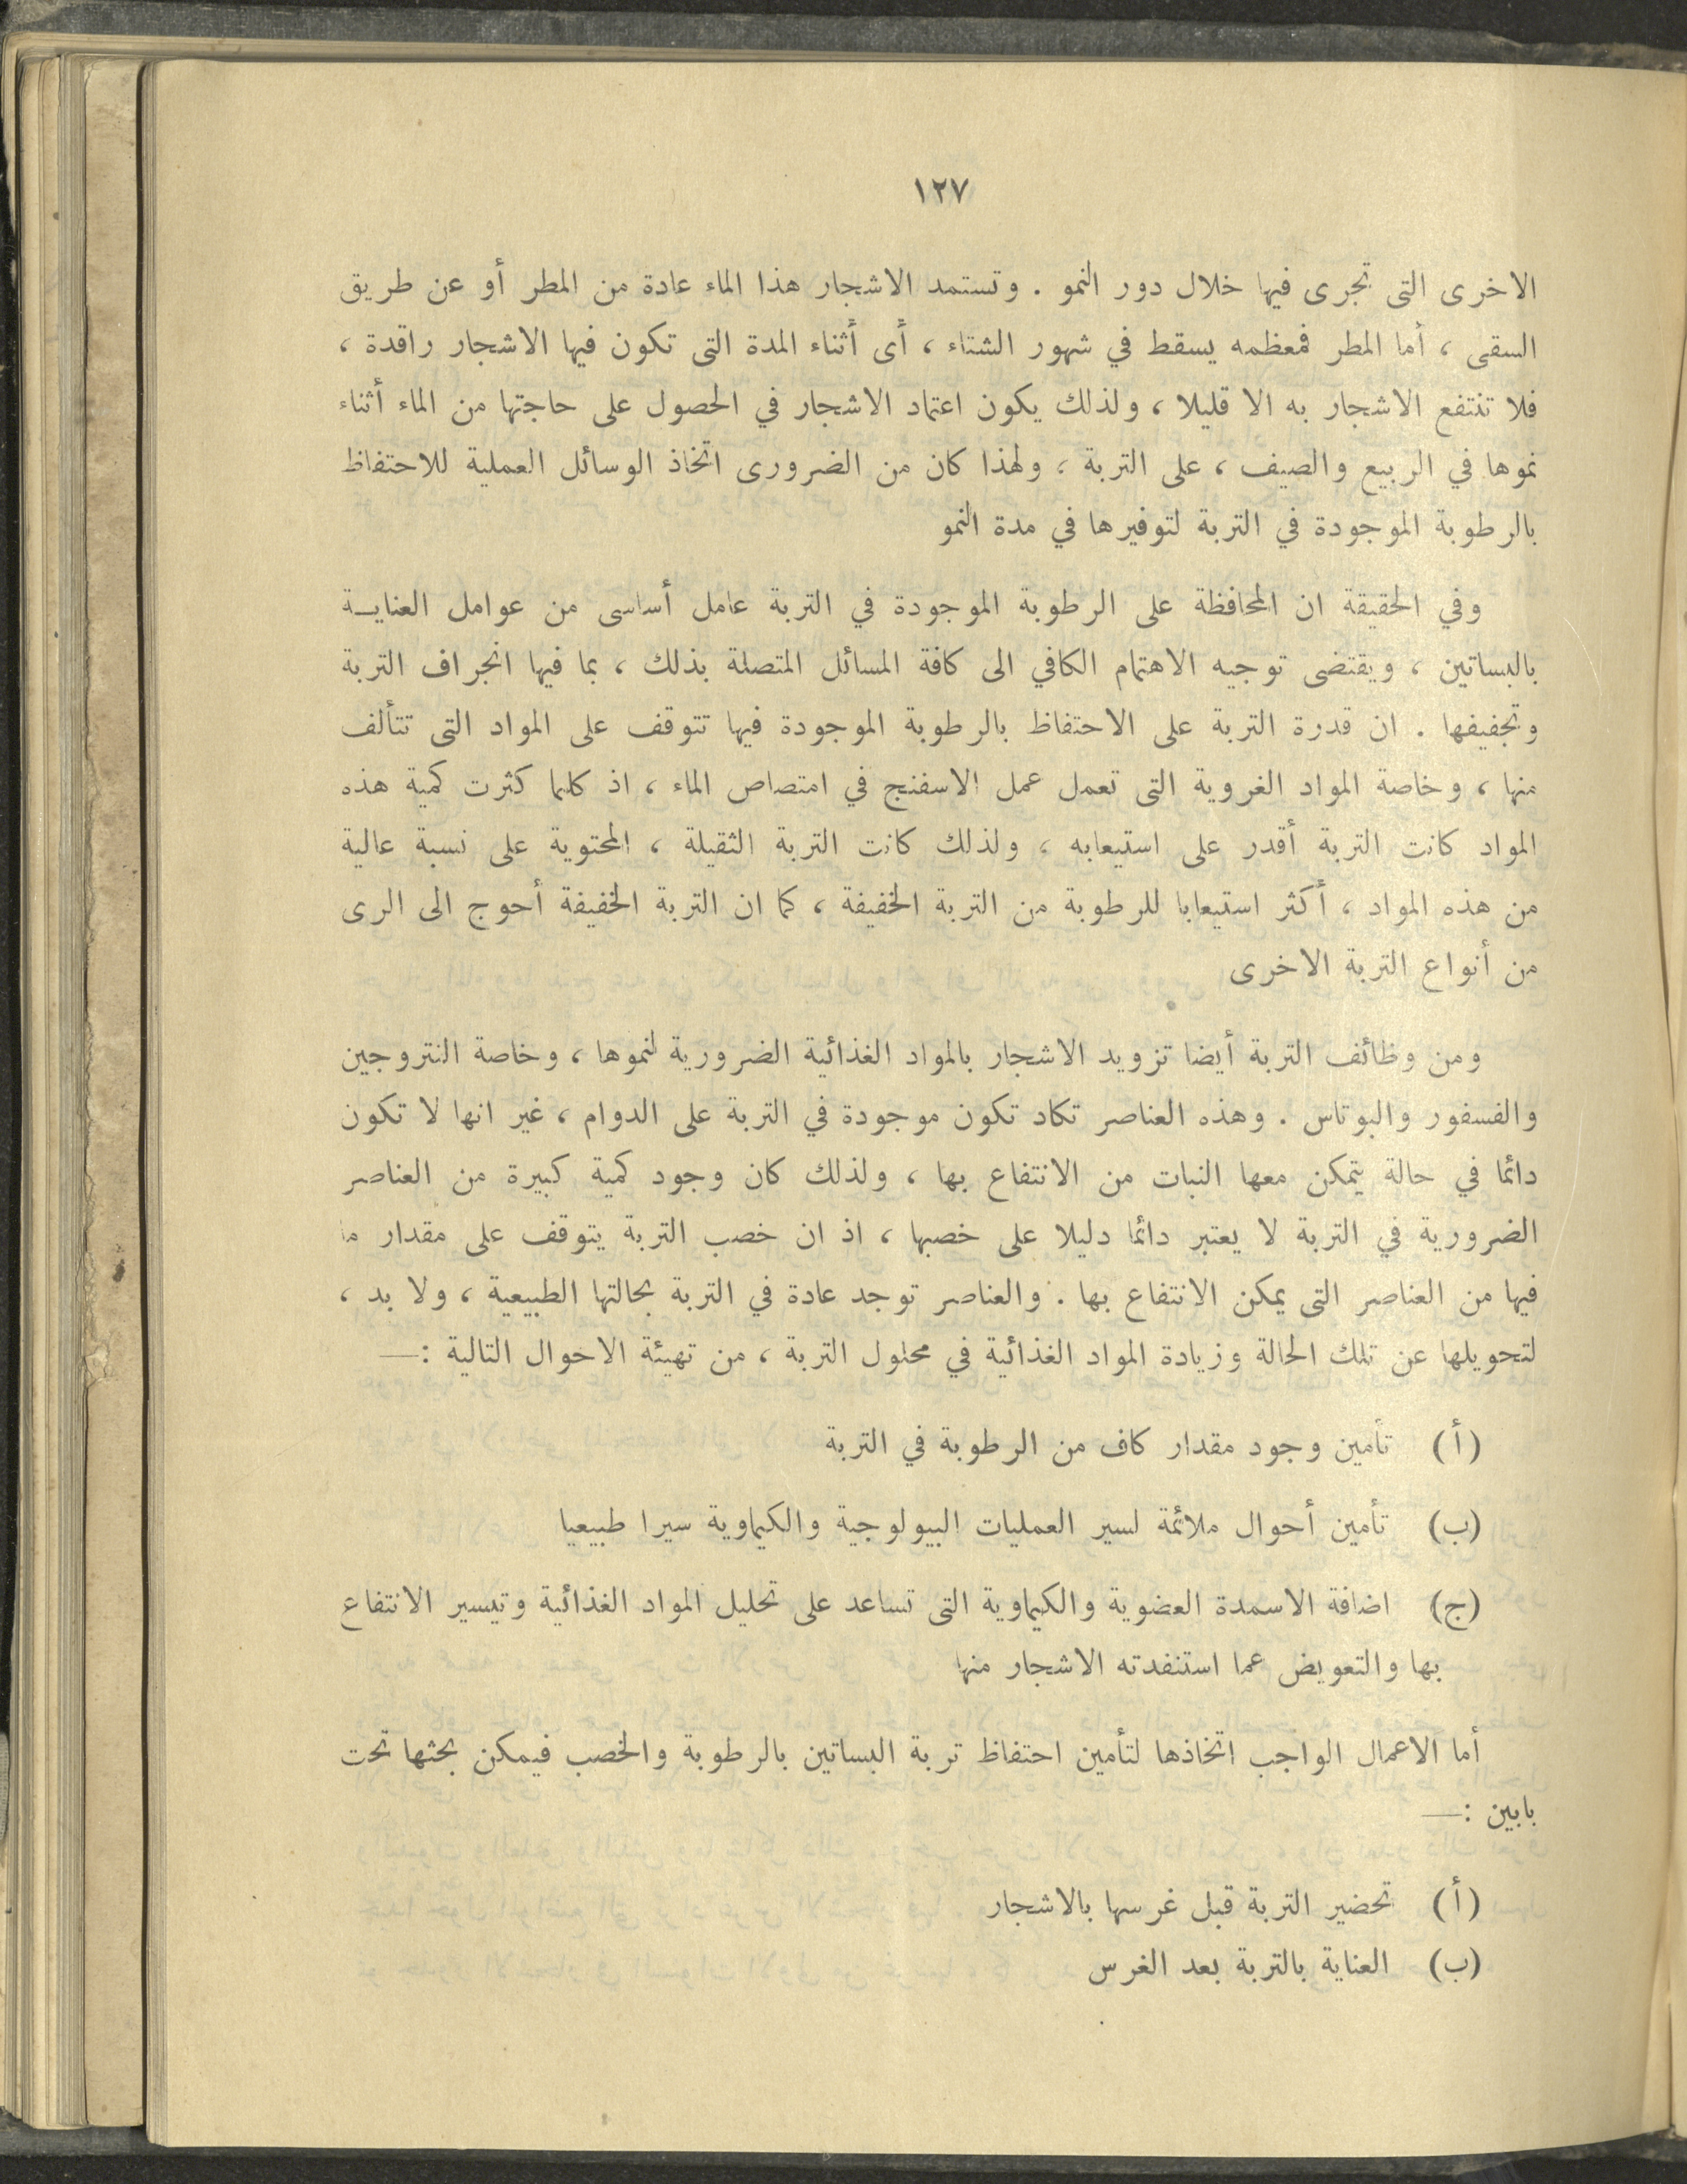 ١٢٧
الاخرى التى تجرى فيها خلال دور النمو . وتستمد الاشجار هذا الماء عادة من المطر أو عن طريق
السقى ، أما المطر فمعظمه يسقط في شهور الشتاء ، أى أثناء المدة التى تكون فيها الاشجار راقدة ،
فلا تنتفع الاشجار به الا قليلا ، ولذلك يكون اعتماد الاشجار في الحصول على حاجتها من الماء أثناء
نموها في الربيع والصيف ، على التربة ، ولهذا كان من الضرورى اتخاذ الوسائل العملية للاحتفاظ
بالرطوبة الموجودة في التربة لتوفيرها في مدة النمو
وفي الحقيقة ان المحافظة على الرطوبة الموجودة في التربة عامل أساسى من عوامل العنايـة
بالبساتين ، ويقتضى توجيه الاهتمام الكافي الى كافة المسائل المتصلة بذلك ، بما فيها انجراف التربة
وتجفيفها . ان قدرة التربة على الاحتفاظ بالرطوبة الموجودة فيها تتوقف على المواد التى تتألف
منها ، وخاصة المواد الغروية التى تعمل عمل الاسفنج في امتصاص الماء ، اذ كلما كثرت كمية هذه
المواد كانت التربة أقدر على استيعابه ، ولذلك كانت التربة الثقيلة ، المحتوية على نسبة عالية
من هذه المواد ، أكثر استيعابا للرطوبة من التربة الخفيفة ، كما ان التربة الخفيفة أحوج الى الرى
من أنواع التربة الاخرى
ومن وظائف التربة أيضا تزويد الاشجار بالمواد الغذائية الضرورية لنموها ، وخاصة النتروجين
والفسفور والبوتاس . وهذه العناصر تكاد تكون موجودة في التربة على الدوام ، غير انها لا تكون
دائما في حالة يتمكن معها النبات من الانتفاع بها ، ولذلك كان وجود كمية كبيرة من العناصر
الضرورية في التربة لا يعتبر دائما دليلا على خصبها ، اذ ان خصب التربة يتوقف على مقدار ما
فيها من العناصر التى يمكن الانتفاع بها . والعناصر توجد عادة في التربة بحالتها الطبيعية ، ولا بد ،
لتحويلها عن تلك الحالة وزيادة المواد الغذائية في محلول التربة ، من تهيئة الاحوال التالية :—
(أ) تأمين وجود مقدار كاف من الرطوبة في التربة
(ب) تأمين أحوال ملائمة لسير العمليات البيولوجية والكيماوية سيرا طبيعيا
(ج) اضافة الاسمدة العضوية والكيماوية التى تساعد على تحليل المواد الغذائية وتيسير الانتفاع
بها والتعويض عما استنفدته الاشجار منها
أما الاعمال الواجب اتخاذها لتأمين احتفاظ تربة البساتين بالرطوبة والخصب فيمكن بحثها تحت
بابين :—
(أ) تحضير التربة قبل غرسها بالاشجار
(ب) العناية بالتربة بعد الغرس